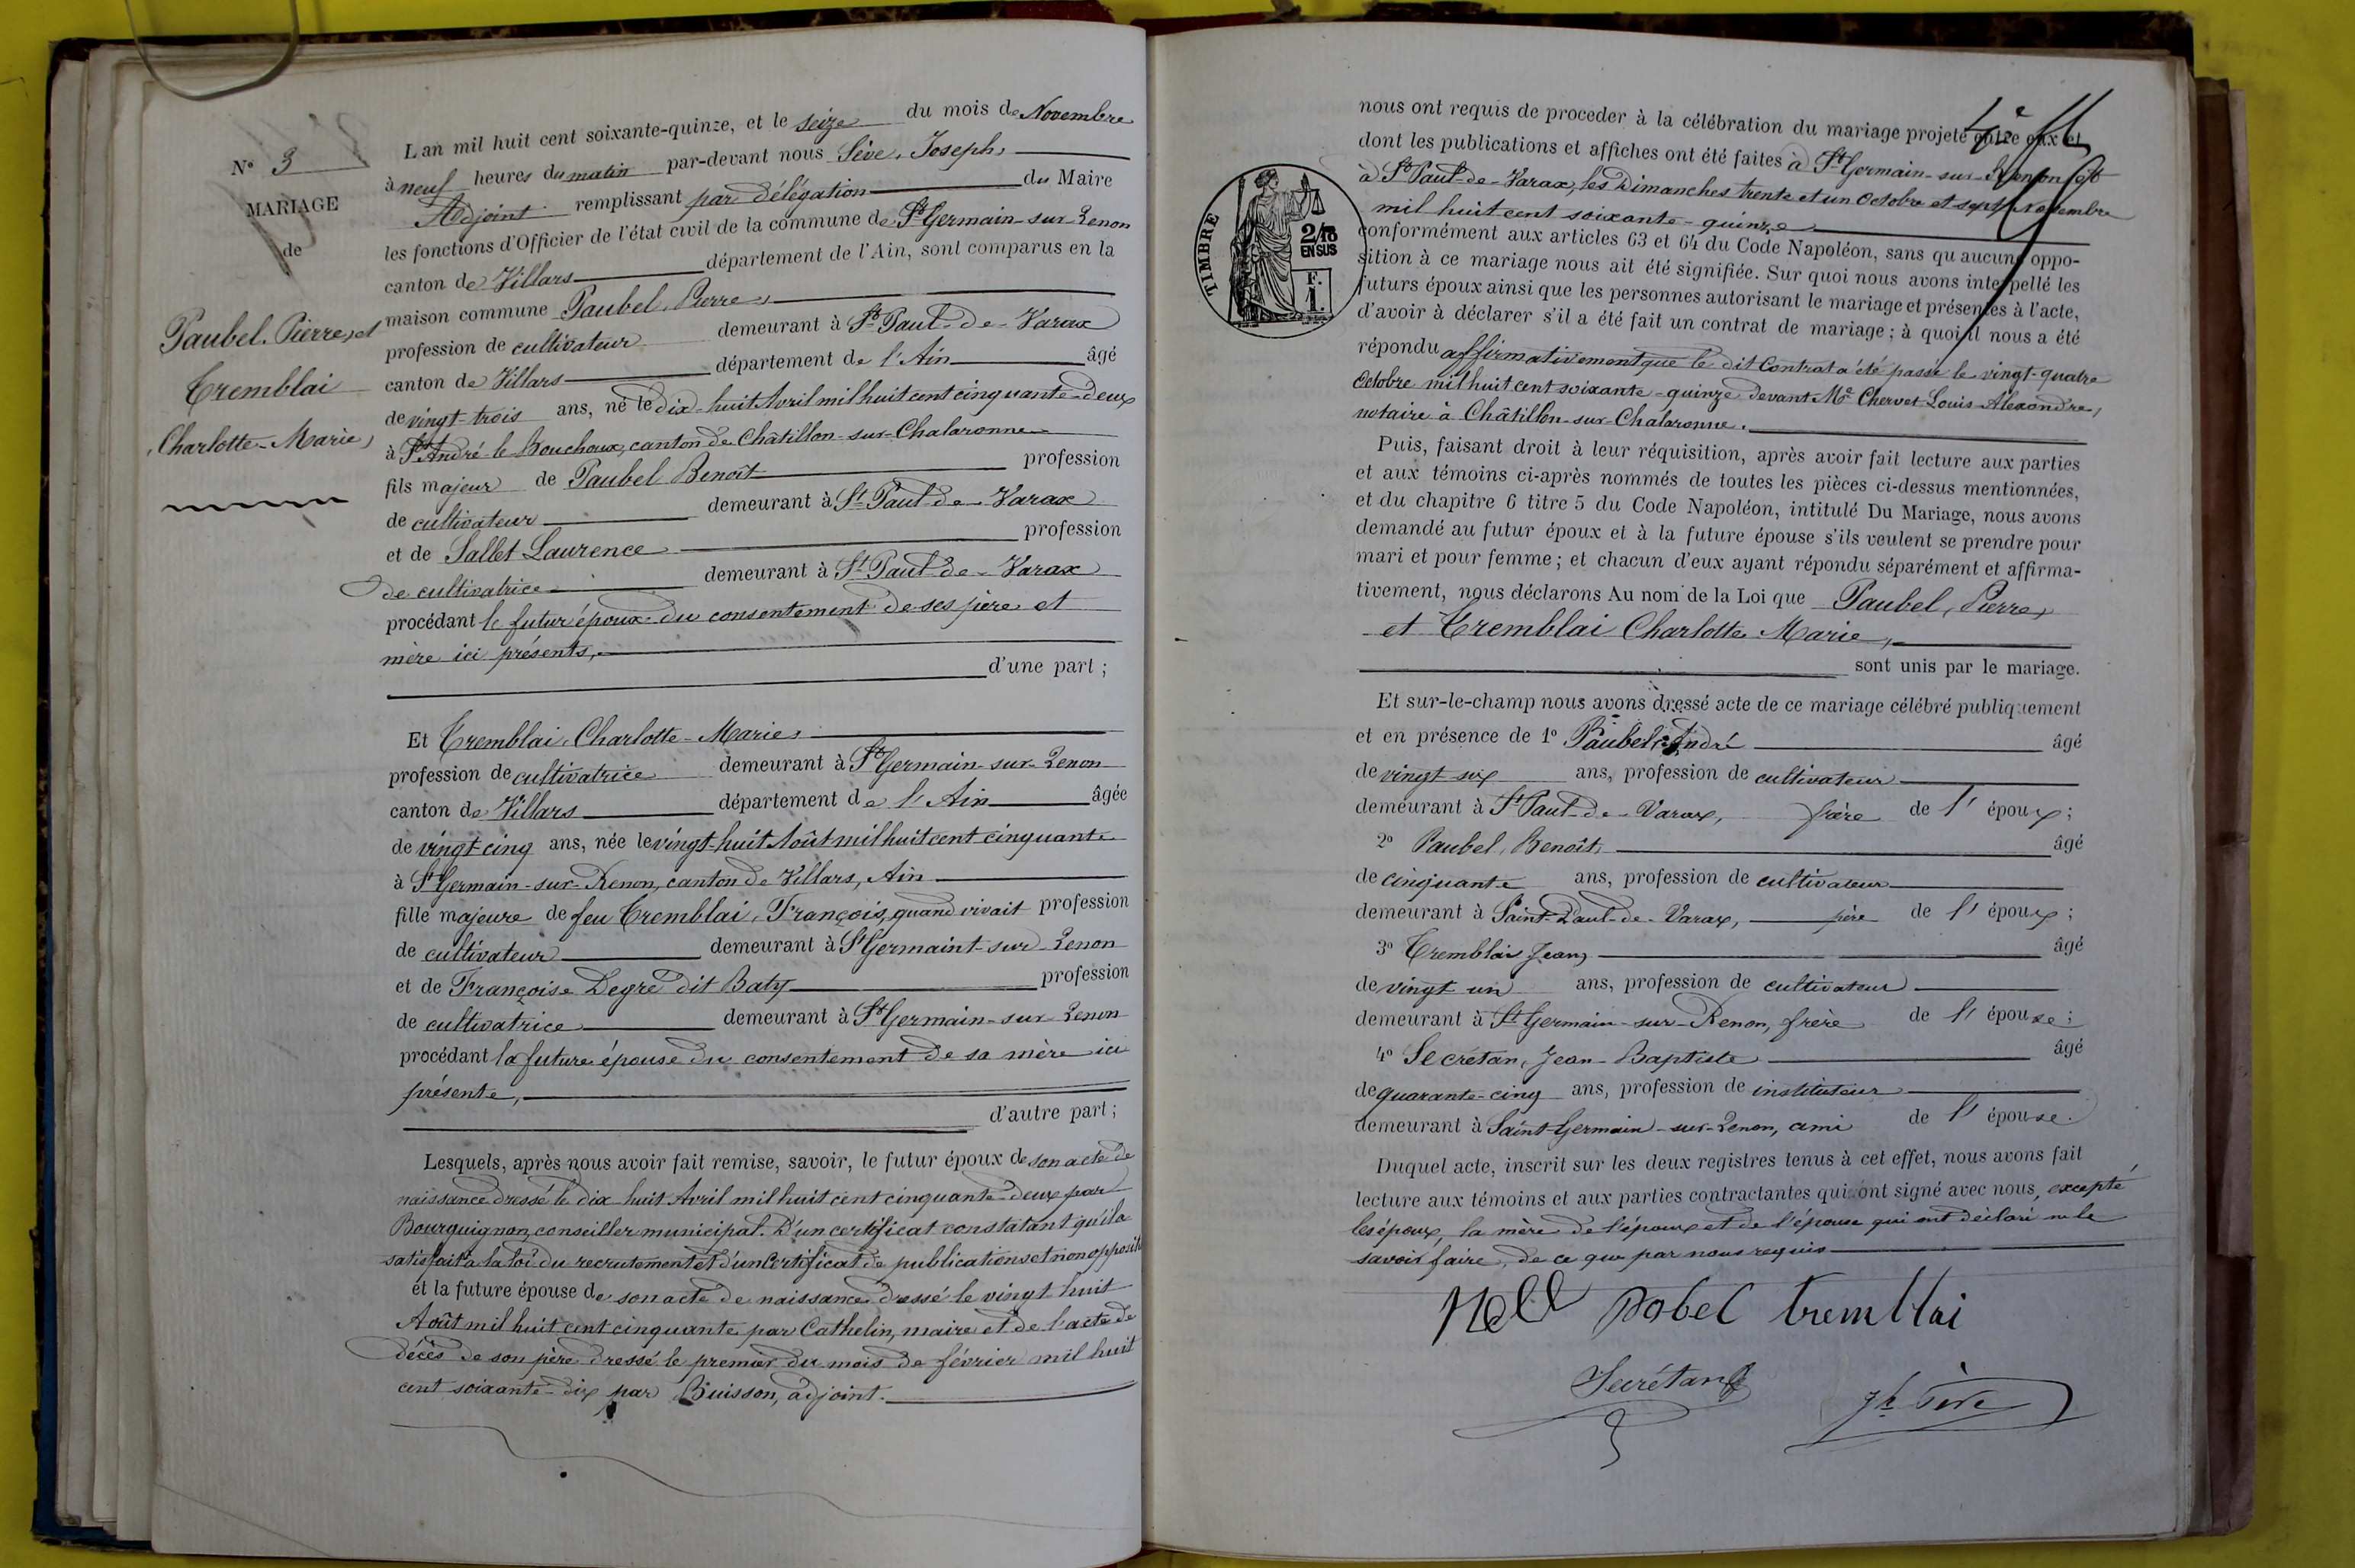 N° 3
MARIAGE
de
Paubel, Pierre, et
Tremblai
Charlotte-Marie,
L'an mil huit cent soixante-quinze, et le seize du mois de Novembre
à neuf heures du matin par-devant nous Sève, Joseph,
Adjoint remplissant par délégation du Maire
les fonctions d'Officier de l'état civil de la commune de St Germain-sur-Renon
canton de Villars département de l'Ain, sont comparus en la
maison commune Paubel, Pierre,
profession de cultivateur demeurant à St Paul-de-Varax
canton de Villars département de l'Ain âgé
de vingt-trois ans, né le dix-huit Avril mil huit cent cinquante-deux
à St André-le-Bouchoux, canton de Châtillon-sur-Chalaronne
fils majeur de Paubel Benoît profession
de cultivateur demeurant à St Paul-de-Varax
et de Sallet Laurence profession
de cultivatrice demeurant à St Paul-de-Varax
procédant le futur époux du consentement de ses père et
mère ici présents,
d'une part ;
Et Tremblai, Charlotte-Marie,
profession de cultivatrice demeurant à St Germain-sur-Renon
canton de Villars département de l'Ain âgée
de vingt-cinq ans, née le vingt-huit Août mil huit cent cinquante
à St Germain-sur-Renon, canton de Villars, Ain
fille majeure de feu Tremblai, François, quand vivait profession
de cultivateur demeurant à St Germaint-sur-Renon
et de Françoise Degré dit Baty profession
de cultivatrice demeurant à St Germain-sur-Renon
procédant la future épouse du consentement de sa mère ici
présente,
d'autre part ;
Lesquels, après nous avoir fait remise, savoir, le futur époux de son acte de
naissance dressé le dix-huit Avril mil huit cent cinquante-deux par
Bourguignon, conseiller municipal. D'un certificat constatant qu'il a
satisfait à la loi du recrutement et d'un Certificat de publications et non opposit
et la future épouse de son acte de naissance dressé le vingt huit
Août mil huit cent cinquante par Cathelin, maire et de l'acte de
décès de son père dressé le premier du mois de février mil huit
cent soixante-dix par Buisson, adjoint.
TIMBRE
2/10
EN SUS
F.
1.
nous ont requis de proceder à la célébration du mariage projeté entre eux et
dont les publications et affiches ont été faites à St Germain-sur-Renon et
à St Paul-de-Varax, les Dimanches trente et un Octobre et sept Novembre
mil huit cent soixante-quinze
conformément aux articles 63 et 64 du Code Napoléon, sans qu'aucune oppo-
sition à ce mariage nous ait été signifiée. Sur quoi nous avons interpellé les
futurs époux ainsi que les personnes autorisant le mariage et présentes à l'acte,
d'avoir à déclarer s'il a été fait un contrat de mariage ; à quoi il nous a été
répondu affirmativement que le dit Contrat a été passé le vingt-quatre
Octobre mil huit cent soixante-quinze devant Me Chervet Louis-Alexandre,
notaire à Châtillon-sur-Chalaronne.
Puis, faisant droit à leur réquisition, après avoir fait lecture aux parties
et aux témoins ci-après nommés de toutes les pièces ci-dessus mentionnées,
et du chapitre 6 titre 5 du Code Napoléon, intitulé Du Mariage, nous avons
demandé au futur époux et à la future épouse s'ils veulent se prendre pour
mari et pour femme ; et chacun d'eux ayant répondu séparément et affirma-
tivement, nous déclarons Au nom de la Loi que Paubel, Pierre,
et Tremblai Charlotte Marie,
sont unis par le mariage.
Et sur-le-champ nous avons dressé acte de ce mariage célébré publiquement
et en présence de 1° Paubel, André âgé
de vingt six ans, profession de cultivateur
demeurant à St Paul-de-Varax, frère de l'époux ;
2° Paubel, Benoît, âgé
de cinquante ans, profession de cultivateur
demeurant à Saint-Paul-de-Varax, père de l'époux ;
3° Tremblai Jean, âgé
de vingt un ans, profession de cultivateur
demeurant à St Germain-sur-Renon, frère de l'épouse ;
4° Secrétan, Jean-Baptiste âgé
de quarante-cinq ans, profession de instituteur
demeurant à Saint-Germain-sur-Renon, ami de l'épouse.
Duquel acte, inscrit sur les deux registres tenus à cet effet, nous avons fait
lecture aux témoins et aux parties contractantes qui ont signé avec nous, excepté
les époux, la mère de l'époux et de l'épouse qui ont déclaré ne le
savoir faire, de ce que par nous requis
pobel tremblai
Secrétan Jh Sève